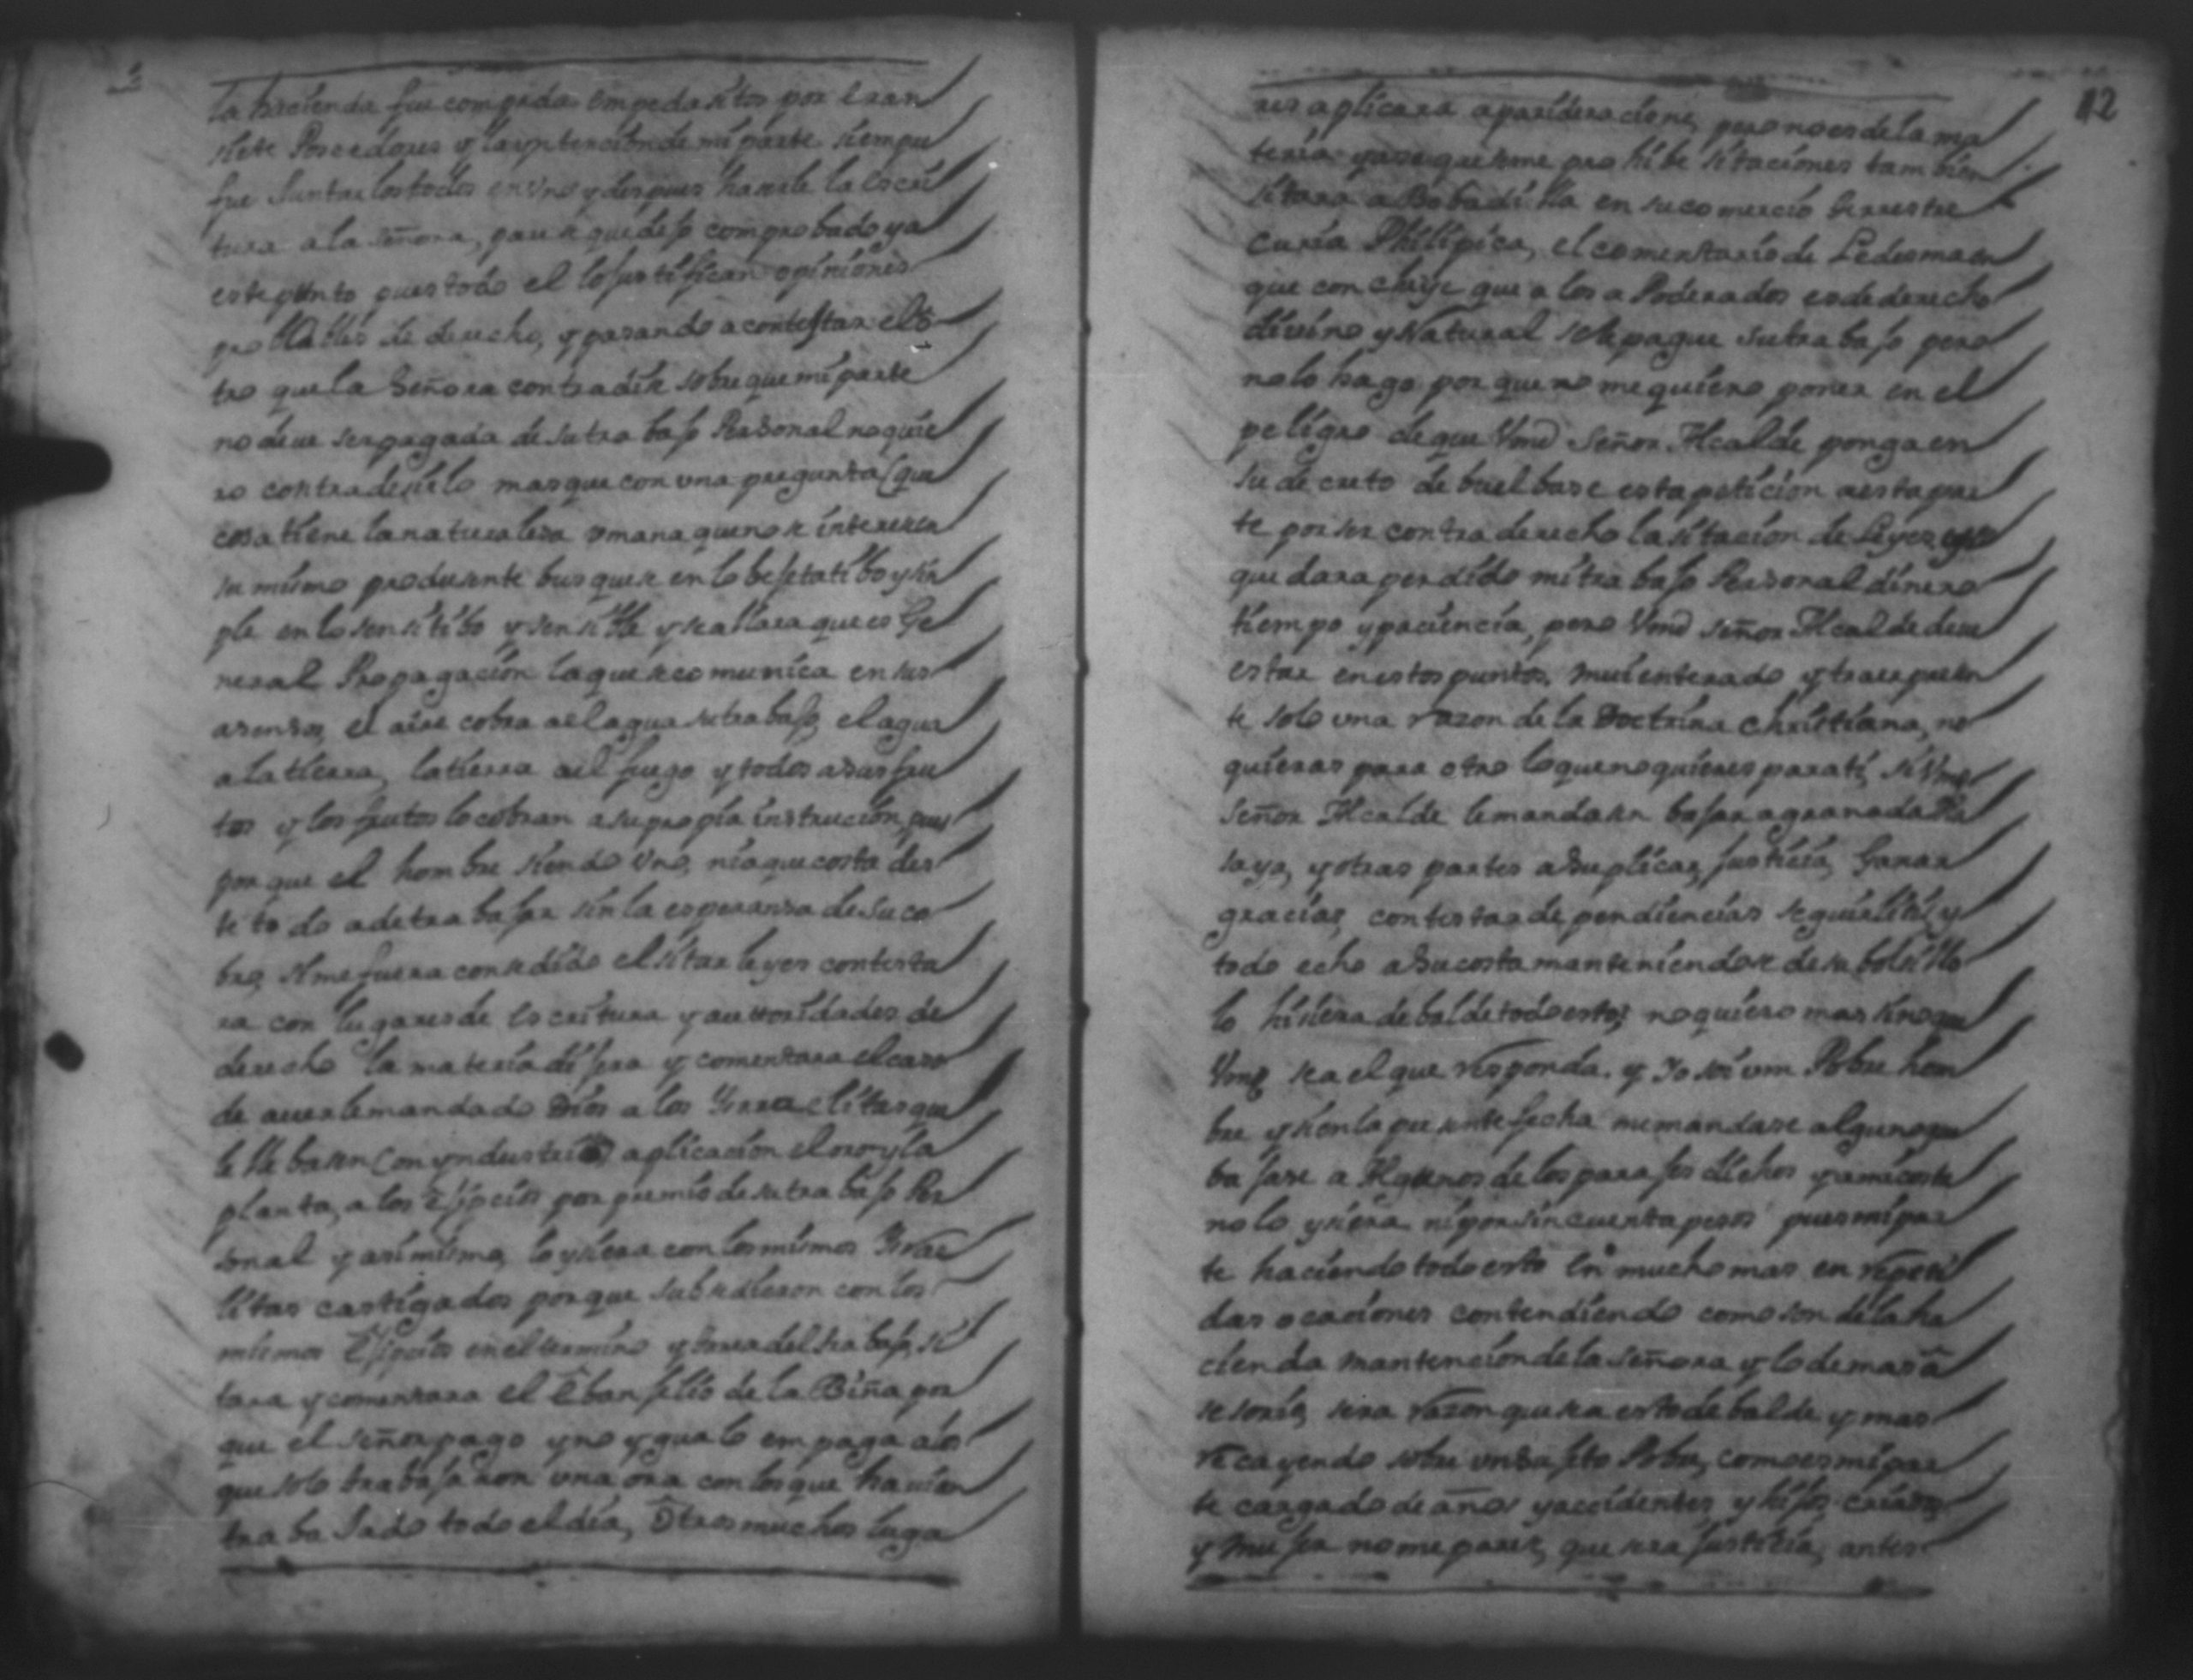 la hacienda fue comprada empedasitos por eran
siete Poseedores y la yntencion de mi parte siempre
fue Juntarlos todos en uno y despues haserle la escri
tura a la señora, para que quedase comprobado ya
este punto pues todo el lo justifican opiniones
probables de derecho, y pasando a contestar el o
tro que la Señora contradise sobre que mi parte
no deve ser pagada de su trabajo Personal no quie
ro contradesirlo mas que con una pregunta (que
cosa tiene la naturalesa omana que no se interesea
su mismo produsente busquese en lo bejetatibo y sin
ple en lo sensitibo y sensible y se allara que es Ge
neral Propagacion la que se comunica en sus
asensos, el aire cobra ael agua su trabajo, el agua
a la tierra, la tierra ael fuego y todos a sus fru
tos y los frutos lo cobran a su propia instrucion, pues
por que el hombre siendo uno, ni a que costa des
te todo a de trabajar sin la esperansa de su co
bro, si me fuera consedido el sitar leyes contesta
ra con lugares de escritura y auttoridades de
derecho la materia dijera y comentara el caso
de averle mandado Dios a los Yrraelitas que
le llebasen con yndustria aplicacion el oro y la
planta, a los Ejipcios por premio de su trabajo Per
sonal y asimismo, lo ysiera con los mismos Yrrae
litas castigados porque subsedieron con los
mismos Ejipcios en el termino y tarea del trabajo, si
tara y comentara el Ebanjelio de la Biña por
que el señor pago y no ygualo em paga a los
que solo trabajaron una ora con los que havian
trabaJado todo el dia, Otros muchos luga
12
res aplicara a parideracione, pero no es de la ma
teria y aunque se me prohibe sitaciones tambien
sitara a Bobadilla en su comercio terrestre
Curia Philipica, el comentario de Ledesma en
que concluye que a los aPoderados es de derecho
divino y Natural se le pague su trabajo pero
no lo hago por que no me quiero poner en el
peligro de que Vmd Señor Alcalde ponga en
su decreto debuelbase esta peticion a esta par
te por ser contra derecho la sitacion de Leyes y se
quedara perdido mi trabajo Personal dinero
tiempo y paciencia, pero Vmd señor Alcalde deve
estar en estos puntos, mui enterado y traer presen
te solo una razon de la Doctrina Christiana, no
quieras para otro lo que no quieres para ti, si Vmd
Señor Alcalde le mandasen bajar a granada Ma
saya, y otras partes a Suplicar, justicia, Ganar
gracias, contestar dependiencias seguir litis y
todo echo a Su costa manteniendose de su bolsillo
lo hisiera de balde todo esto, no quiero mas sino que
Vmd sea el que responda. y Yo soi um Pobre hom
bre y si en la presente fecha me mandase alguno que
bajase a Algunos de los parajes dichos y a mi costa
no lo ysiera ni por sincuenta pesos pues mi par
te haciendo todo esto en mucho mas en repeti
das ocaciones contendiendo como son de la ha
cienda mantencion de la señora y lo demas a
sesorio, sera razon que sea esto de balde y mas
recayendo sobre un Sujeto Pobre, como es mi par
te cargado de años y accidentes, y hijos, criados
y Mujer no me parese, que sera justicia, antes